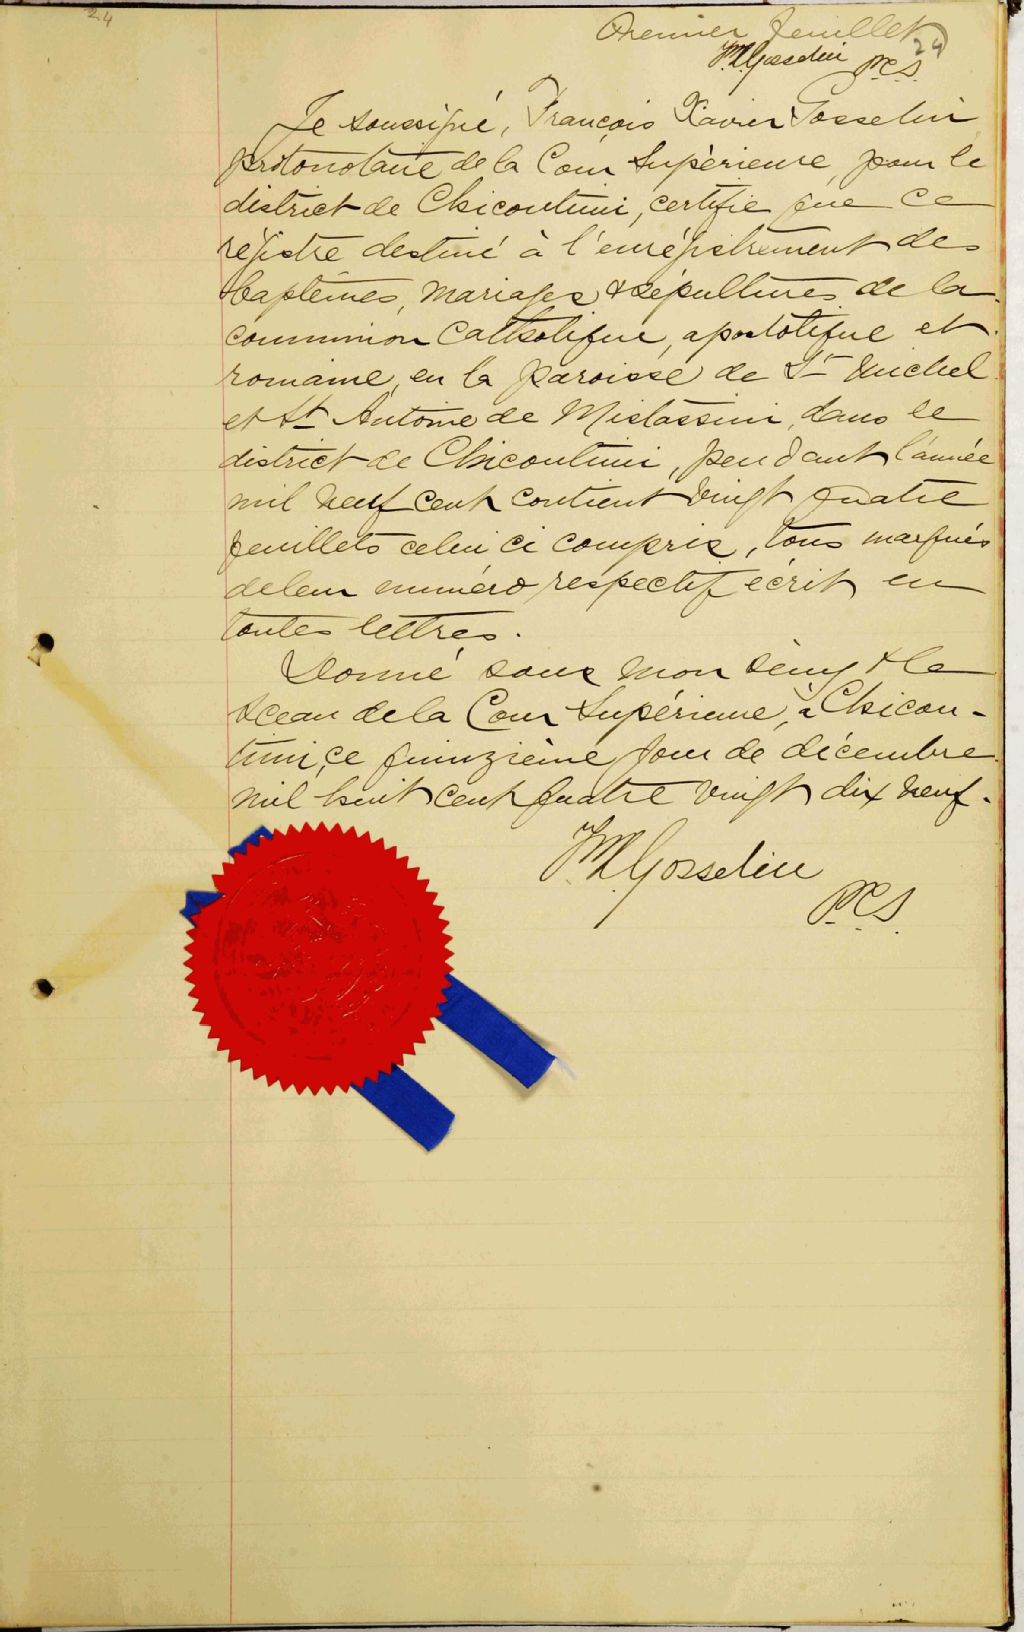 24
Premier feuillet
24
FX Gosselin P.C.S.
Je soussigné, François Xavier Gosselin
protonotaire de la Cour Supérieure, pour le
district de Chicoutimi, certifie que ce
régistre destiné à l'enrégistrement des
baptêmes, mariages & sépultures de la
communion Catholique, apostolique et
romaine, en la paroisse de St Michel
et St Antoine de Mistassini, dans le
district de Chicoutimi, pendant l'année
mil neuf cent contient vingt quatre
feuillets celui ci compris, tous marqués
de leur numéro respectif écrit en
toutes lettres.
Donné sous mon seing & le
sceau de la Cour Supérieure, à Chicou-
timi, ce quinzième jour de décembre
mil huit cent quatre vingt dix neuf.
FX Gosselin
P.C.S.